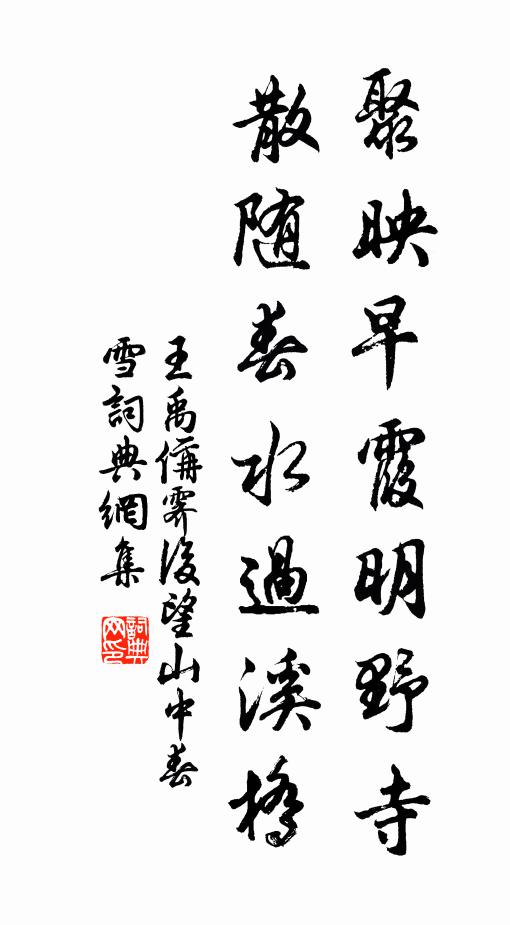 聚映早霞明野寺
散随春水過溪橋
王禹偁霽後望山中春
雪詞典網集
詞典网印